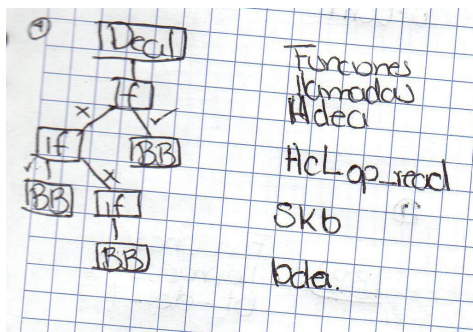 ④
Decal
if
x ✓
if BB
✓ x
BB if
BB
Funciones
llamadas
Hdea
HCL_op_read
Skb
bda.